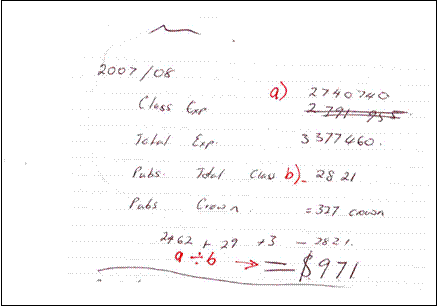 2007/08
a) 2740740
Class Exp 2 791 955
Total Exp. 3377460.
Pubs. Total Class b) - 2821
Pubs Crown = 327 crown
2462 + 29 + 3 - 2821.
a ÷ b → = $971